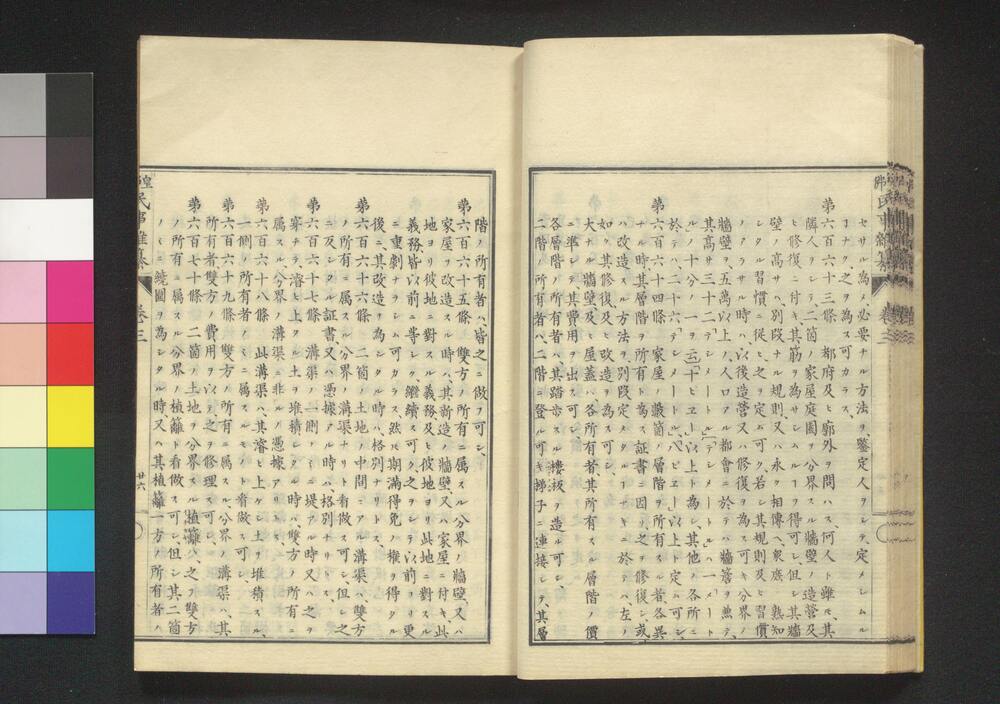 セサル為メ必要ナル方法ヲ、鑒定人ヲシテ定メシムル
ヿナク之ヲ為ス可カラス、
第六百六十三條 都府及ヒ廓外ヲ問ハス、何人ト雖モ、其
隣人ヲシテ、二箇ノ家屋庭園ヲ分界スル牆壁ノ造営及
ヒ修復ニ付キ、其筋ヲ為サシムルヿヲ得可シ、但シ其牆
壁ノ高サハ、別段ナル規則又ハ永ク相傳ヘ衆庶ノ熟知
シタル習慣ニ從ヒ、之ヲ定ム可ク、若シ其規則及ヒ習慣
ノアラサル時ハ、以後造営又ハ修復ヲ為ス可キ分界ノ
牆壁ヲ、五萬以上ノ人口アル都會ニ於テハ牆簷ヲ兼テ、
其高サ三十二「デシメートル」「デシメートル」ハ一「メート
ル」ノ十分ノ一ヲ云十ピエー以上ト為シ、其他ノ各所ニ
於テハ、二十六「デシメートル」八「ピエー」以上ト定ム可シ、
第六百六十四條 家屋ノ數箇ノ層階ヲ所有スル者各異
ナル時其層階ノ所有ノ證書ニ因リ、之ヲ修復シ、或
ハ改造スル方法ヲ別段定メタルヿナキニ於テハ、左ノ
如ク其修復及ヒ改造ヲ為ス可シ、
大ナル牆壁及ヒ屋蓋ハ各所有者、其所有スル層階ノ價
ニ準シテ、其費用ヲ出ス可シ、
各層階ノ所有者ハ、其踏歩スル樓板ヲ造ル可シ、
二階ノ所有者ハ、二階ニ登ル可キ梯子ニ連接シテ、其層
階ノ所有者ハ、皆之ニ倣フ可シ、
第六百六十五條 雙方ノ所有ニ属スル分界ノ牆壁、又ハ
家屋ヲ改造スル時ハ、其新造ノ牆壁又ハ家屋ニ付キ、此
地ヨリ彼地ニ對スル義務及ヒ彼地ヨリ此地ニ對スル
義務、皆以前ニ等シク継續ス可ク、之ヲシテ以前ヨリ更
ニ重劇ナラシム可カラス、然レ𪜈期満得免ノ権ヲ得タル
後ニ、其改造ヲ為シタル時ハ、格別ナリトス、
第六百六十六條 二箇ノ土地ノ中間ニアル溝渠ハ、雙方
ノ所有ニ属スル分界ノ溝渠ナリト看做ス可シ、但シ之
ニ反シタル証書又ハ憑據アル時ハ格別ナリトス、
第六百六十七條 溝渠ノ一側ノミニ堤アル時又ハ之ヲ
穿チ、濬ヒ上ケタル土ヲ堆積シタル時ハ、雙方ノ所有ニ
属スル分界ノ溝渠ニ非ルノ憑據アリトス、
第六百六十八條 此溝渠ハ、其濬ヒ上ケシ土ヲ堆積スル、
一側ノ所有者ノミニ属スルモノト看做ス可シ、
第六百六十九條 雙方ノ所有ニ属スル、分界ノ溝渠ハ、其
所有者雙方ノ費用ヲ以テ、之ヲ修理ス可シ、
第六百七十條 二箇ノ土地ヲ分界スル、植籬ハ、之ヲ雙方
ノ所有ニ属スル分界ノ植籬ト看做ス可シ、但シ其二箇
ノミニ繞圍ヲ為シタル時又ハ其植籬一方ノ所有者ノ
民事
卷三
廿六